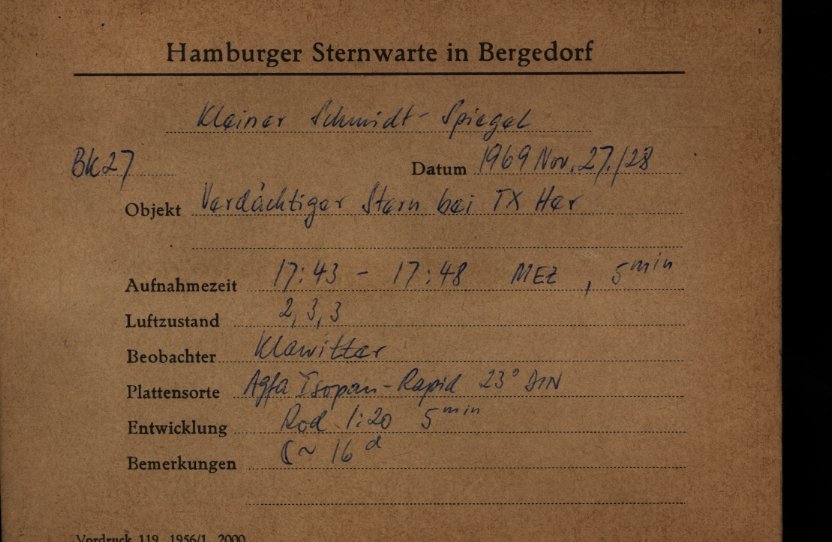 Hamburger Sternwarte in Bergedorf
Kleiner Schmidt-Spiegel
BK27 Datum 1969 Nov. 27./28
Objekt Verdächtiger Stern bei TX Her
Aufnahmezeit 17:43 - 17:48 MEZ, 5 min
Luftzustand 2, 3, 3
Beobachter Klawitter
Plattensorte Agfa Isopan-Rapid 23° DIN
Entwicklung Rod 1:20 5 min
Bemerkungen ☾ ~ 16 d
Vordruck 119 1956/1 2000